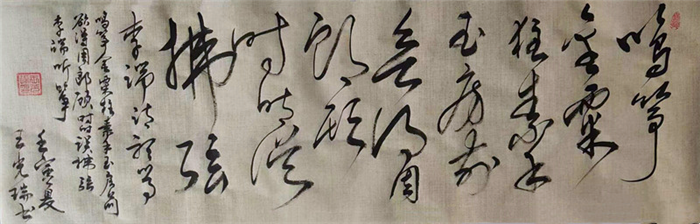 鸣筝
金粟
柱素手
玉房前
欲得周
郎顾
时时误
拂弦
李端诗听筝
鸣筝金粟柱素手玉房前
欲得周郎顾时时误拂弦
李端听筝
壬寅夏
王光瑞书